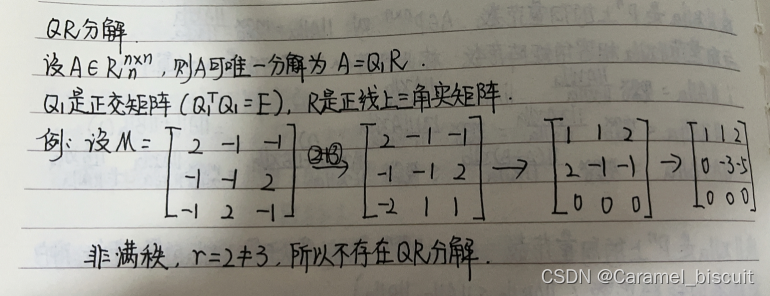 QR分解.
设A∈Rₙⁿˣⁿ, 则A可唯一分解为 A=Q₁R.
Q₁是正交矩阵(Q₁ᵀQ₁=E), R是正线上三角实矩阵.
例: 设M= [2 -1 -1] ②+③→ [2 -1 -1] → [1 1 2] → [1 1 2]
[-1 -1 2] [-1 -1 2] [2 -1 -1] [0 -3 -5]
[-1 2 -1] [-2 1 1] [0 0 0] [0 0 0]
非满秩, r=2≠3, 所以不存在QR分解.
CSDN @Caramel_biscuit